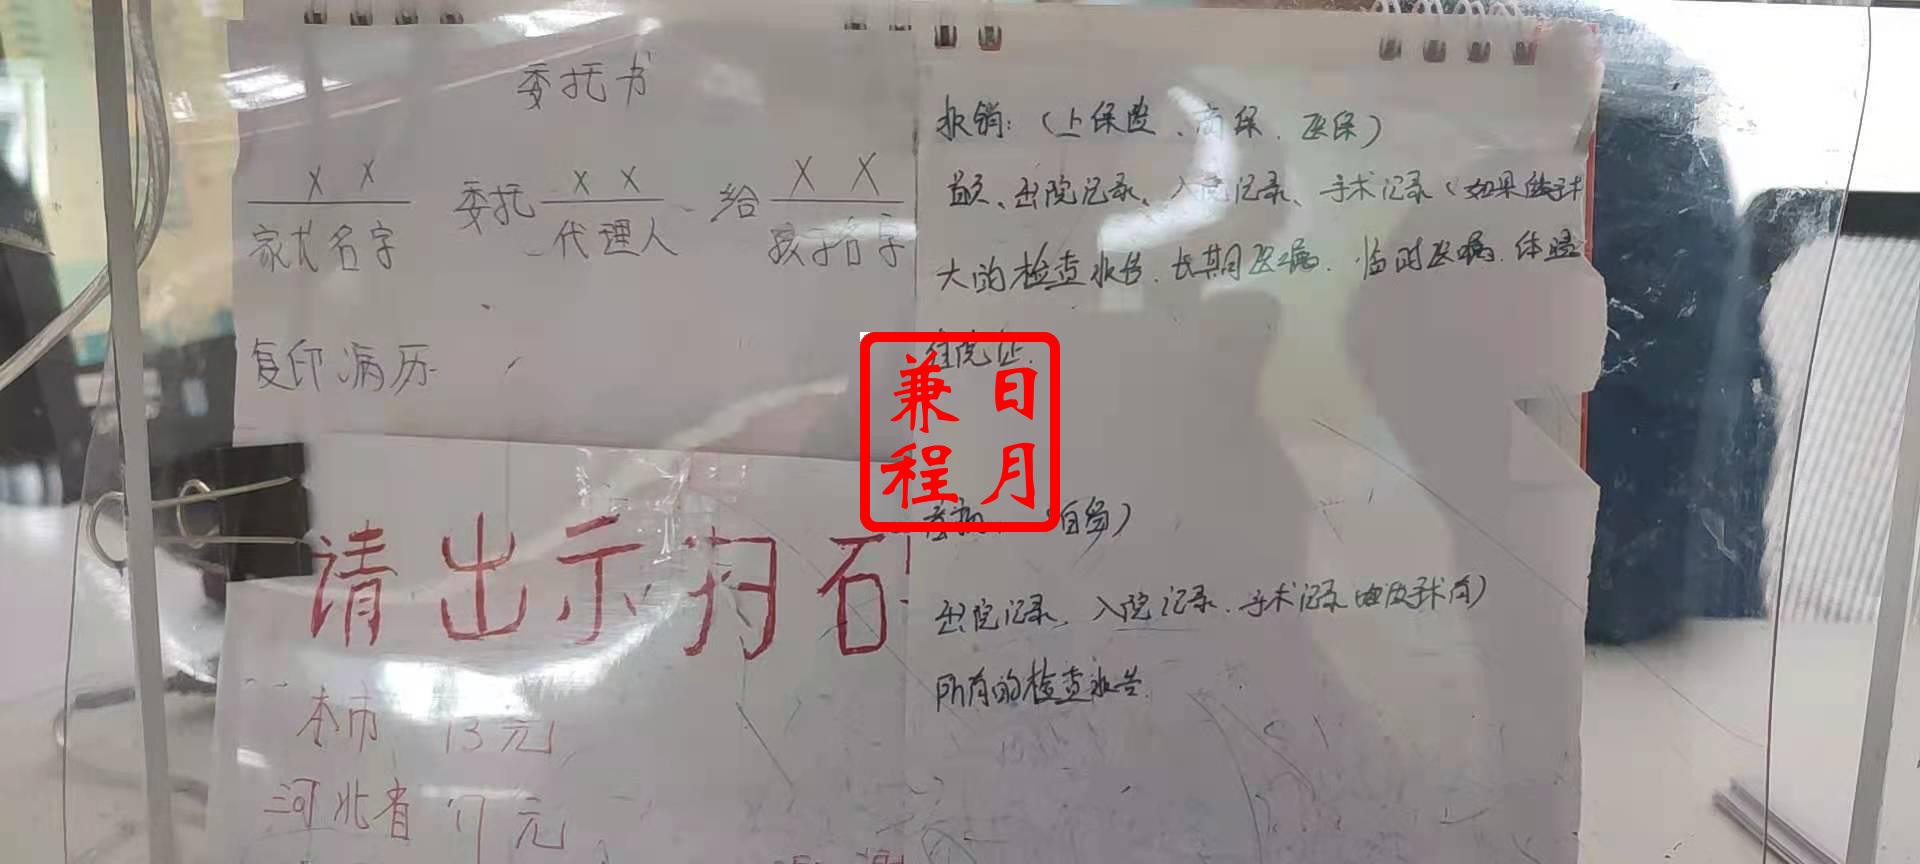 委托书
X X 委托 X X 给 X X
家长名字 代理人 孩子名字
复印病历
请出示扫
本市 13元
河北省 17元
报销:(上保险、商保、医保)
首页、出院记录、入院记录、手术记录(如果做手术
大的检查报告、长期医嘱、临时医嘱、体温
住院证.
日月
兼程
出院记录、入院记录、手术记录
所有的检查报告.